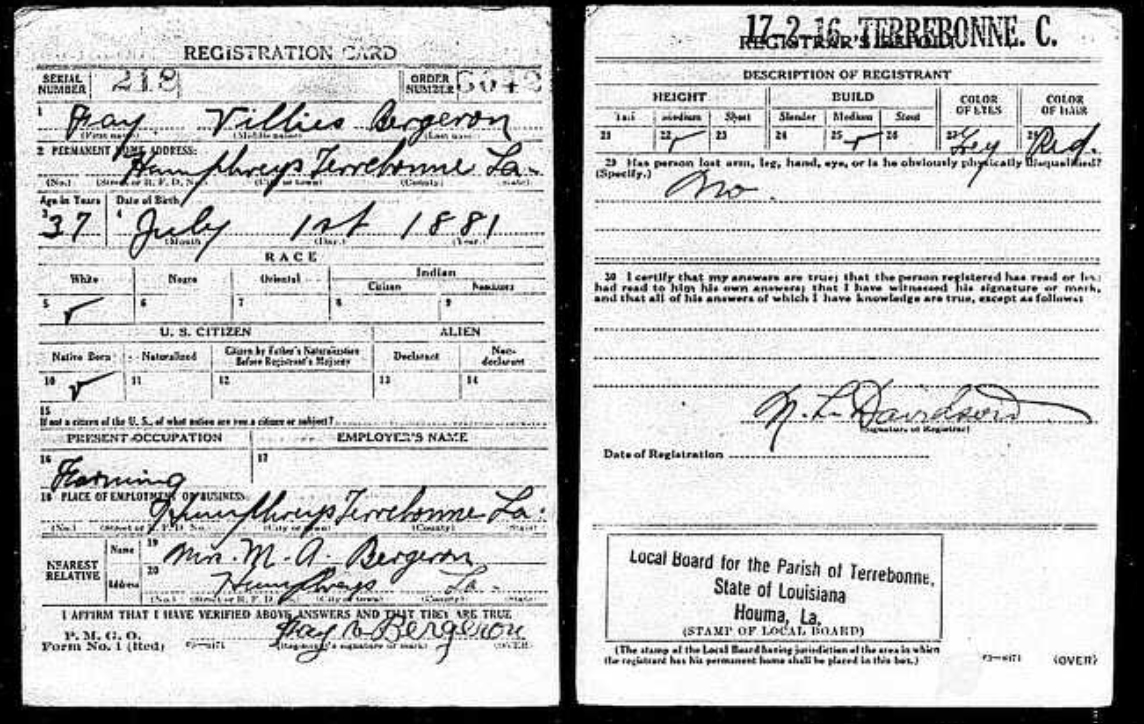 REGISTRATION CARD
SERIAL NUMBER 218 ORDER NUMBER
1 Fay Villies Bergeron
(First name) (Middle name) (Last name)
2 PERMANENT HOME ADDRESS:
Humphreys Terrebonne La.
(No.) (Street or R. F. D. No.) (City or town) (County) (State)
Age in Years Date of Birth
3 37 4 July 1st 1881
(Month) (Day) (Year)
RACE
White Negro Oriental Indian
Citizen Noncitizen
5 ✓ 6 7 8 9
U. S. CITIZEN ALIEN
Native Born Naturalized Citizen by Father's Naturalization Before Registrant's Majority Declarant Non-declarant
10 ✓ 11 12 13 14
15
If not a citizen of the U. S., of what nation are you a citizen or subject?
PRESENT OCCUPATION EMPLOYER'S NAME
16 Farming 17
18 PLACE OF EMPLOYMENT OR BUSINESS:
Humphreys Terrebonne La.
(No.) (Street or R. F. D. No.) (City or town) (County) (State)
NEAREST RELATIVE Name 19 Mrs. M. A. Bergeron
Address 20 Humphreys La.
(No.) (Street or R. F. D. No.) (City or town) (County) (State)
I AFFIRM THAT I HAVE VERIFIED ABOVE ANSWERS AND THAT THEY ARE TRUE
P. M. G. O.
Form No. 1 (Red) Fay V. Bergeron
(Registrant's signature or mark) (OVER)
17-2-16 TERREBONNE. C.
REGISTRAR'S REPORT
DESCRIPTION OF REGISTRANT
HEIGHT BUILD COLOR OF EYES COLOR OF HAIR
Tall Medium Short Slender Medium Stout
21 22 ✓ 23 24 25 ✓ 26 27 28 Red.
29 Has person lost arm, leg, hand, eye, or is he obviously physically disqualified?
(Specify.)
No.
30 I certify that my answers are true; that the person registered has read or has
had read to him his own answers; that I have witnessed his signature or mark,
and that all of his answers of which I have knowledge are true, except as follows:
Davidson
(Signature of Registrar)
Date of Registration
Local Board for the Parish of Terrebonne,
State of Louisiana
Houma, La.
(STAMP OF LOCAL BOARD)
(The stamp of the Local Board having jurisdiction of the area in which
the registrant has his permanent home shall be placed in this box.)
(OVER)